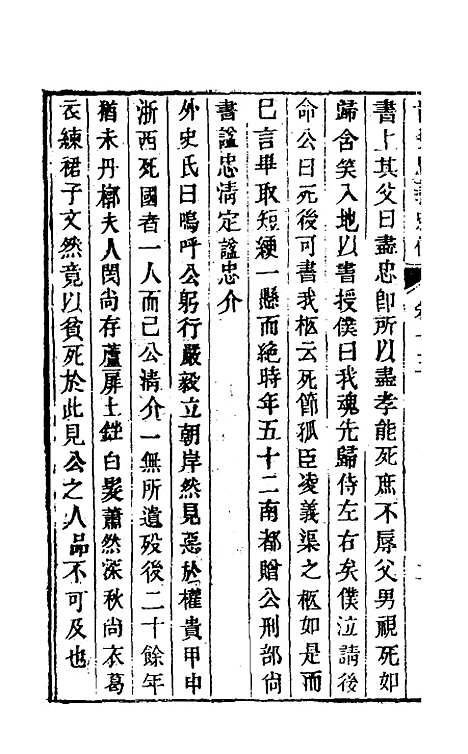 書上其父曰盡忠卽所以盡孝能死庶不辱父男視死如
歸含笑入地以書授僕曰我魂先歸侍左右矣僕泣請後
命公曰死後可書我柩云死節孤臣凌義渠之柩如是而
巳言畢取短綆一懸而絕時年五十二南都贈公刑部尙
書諡忠淸定諡忠介
外史氏曰嗚呼公躬行嚴毅立朝岸然見惡於權貴甲申
浙西死國者一人而已公淸介一無所遺歿後二十餘年
猶未丹槨夫人閔尚存蘆屏土銼白髮蕭然深秋尚衣葛
衣練裙子文然竟以貧死於此見公之人品不可及也